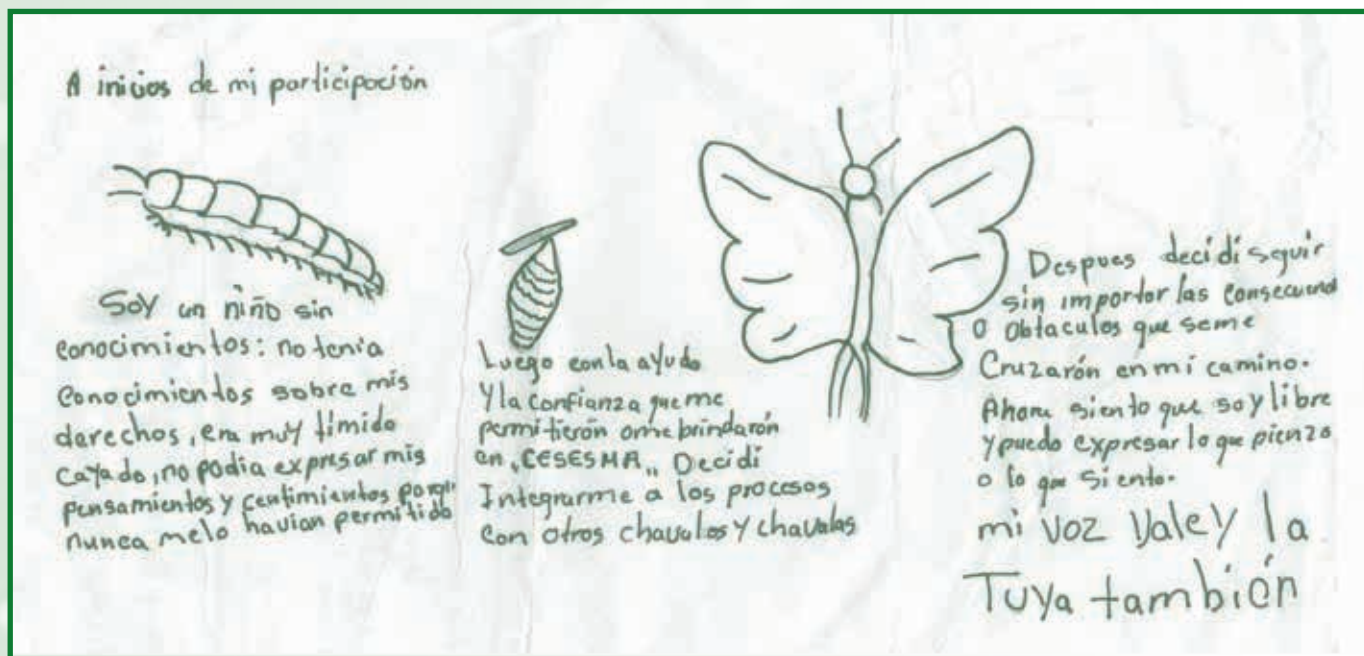 A inicios de mi participación
Soy un niño sin
conocimientos: no tenia
conocimientos sobre mis
derechos, era muy tímido
cayado, no podia expresar mis
pensamientos y centimientos porq'
nunca melo havian permitido
Luego con la ayuda
Y la confianza que me
permitierón o me brindarón
en "CESESMA" Decidi
Integrarme a los procesos
con otros chavalos y chavalas
Despues decidi seguir
sin importar las consecuencia
o obtaculos que seme
Cruzarón en mi camino.
Ahora siento que soy libre
y puedo expresar lo que pienzo
o lo que siento.
mi voz vale y la
Tuya también